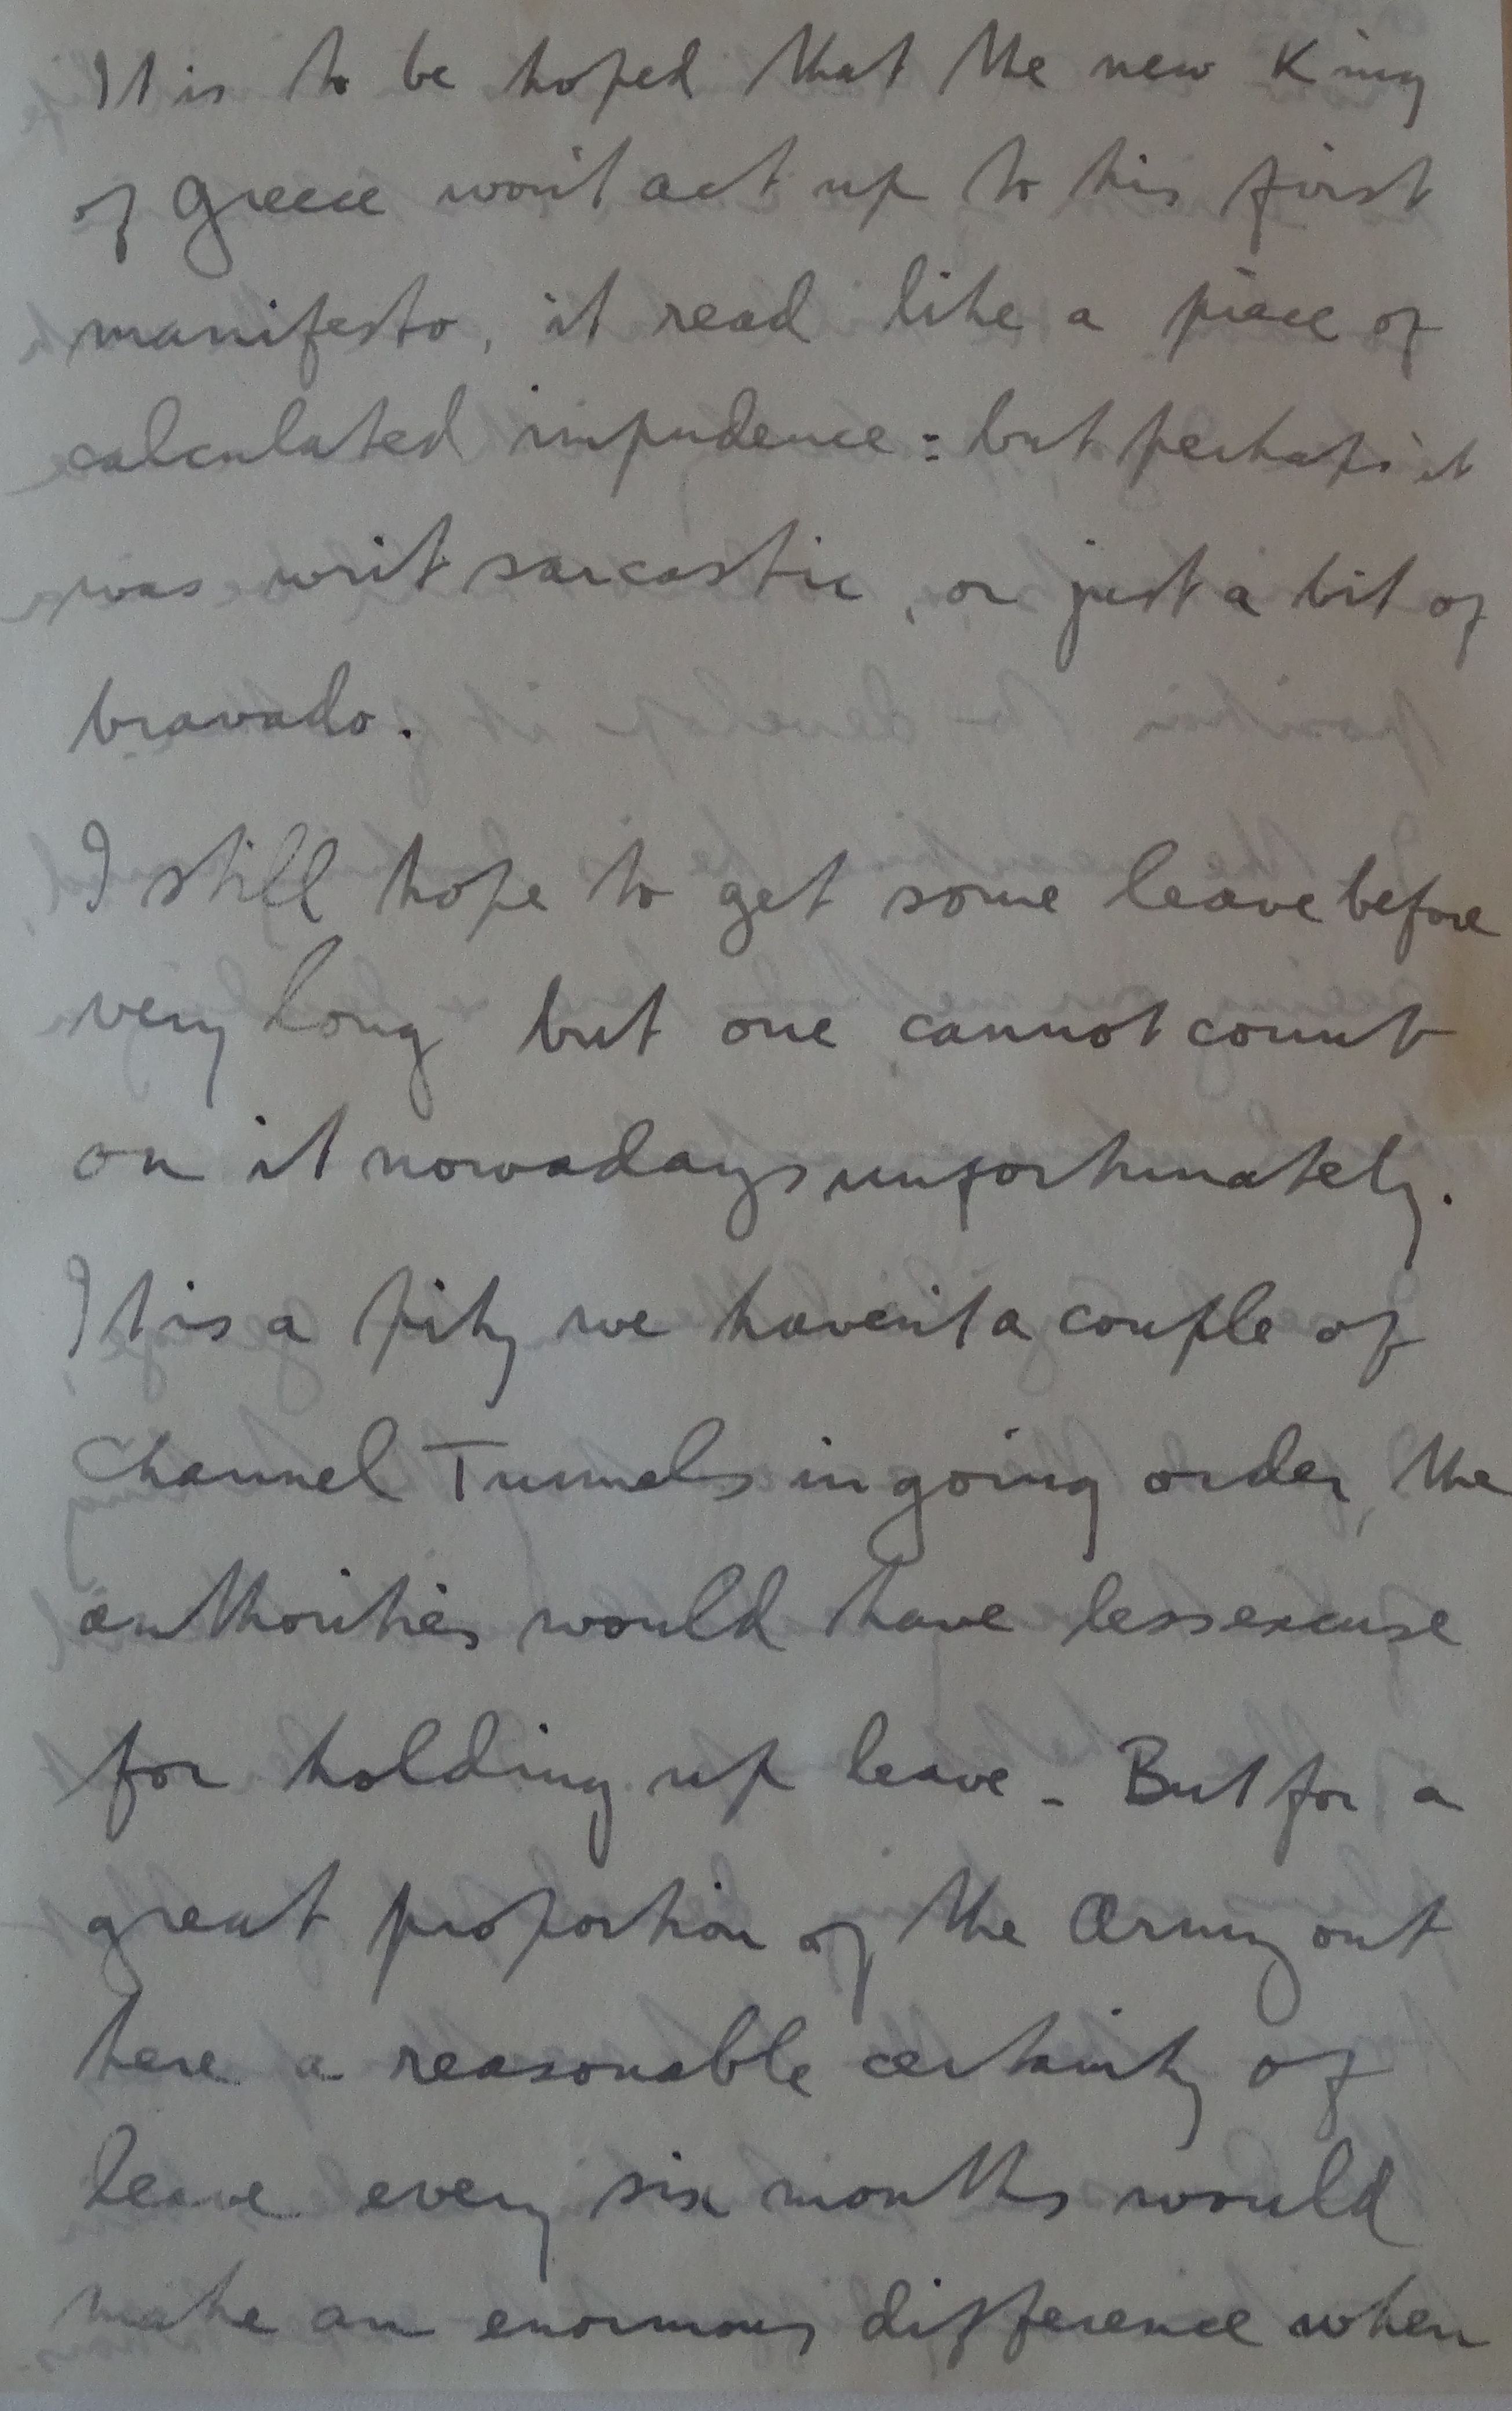 It is to be hoped that the new King
of Greece won't act up to his first
manifesto, it read like a piece of
calculated impudence : but perhaps it
was writ sarcastic, or just a bit of
bravado.
I still hope to get some leave before
very long but one cannot count
on it nowadays unfortunately.
It is a pity we haven't a couple of
Channel Tunnels in going order, the
authorities would have less excuse
for holding up leave - But for a
great proportion of the Army out
here a reasonable certainty of
leave every six months would
make an enormous difference when